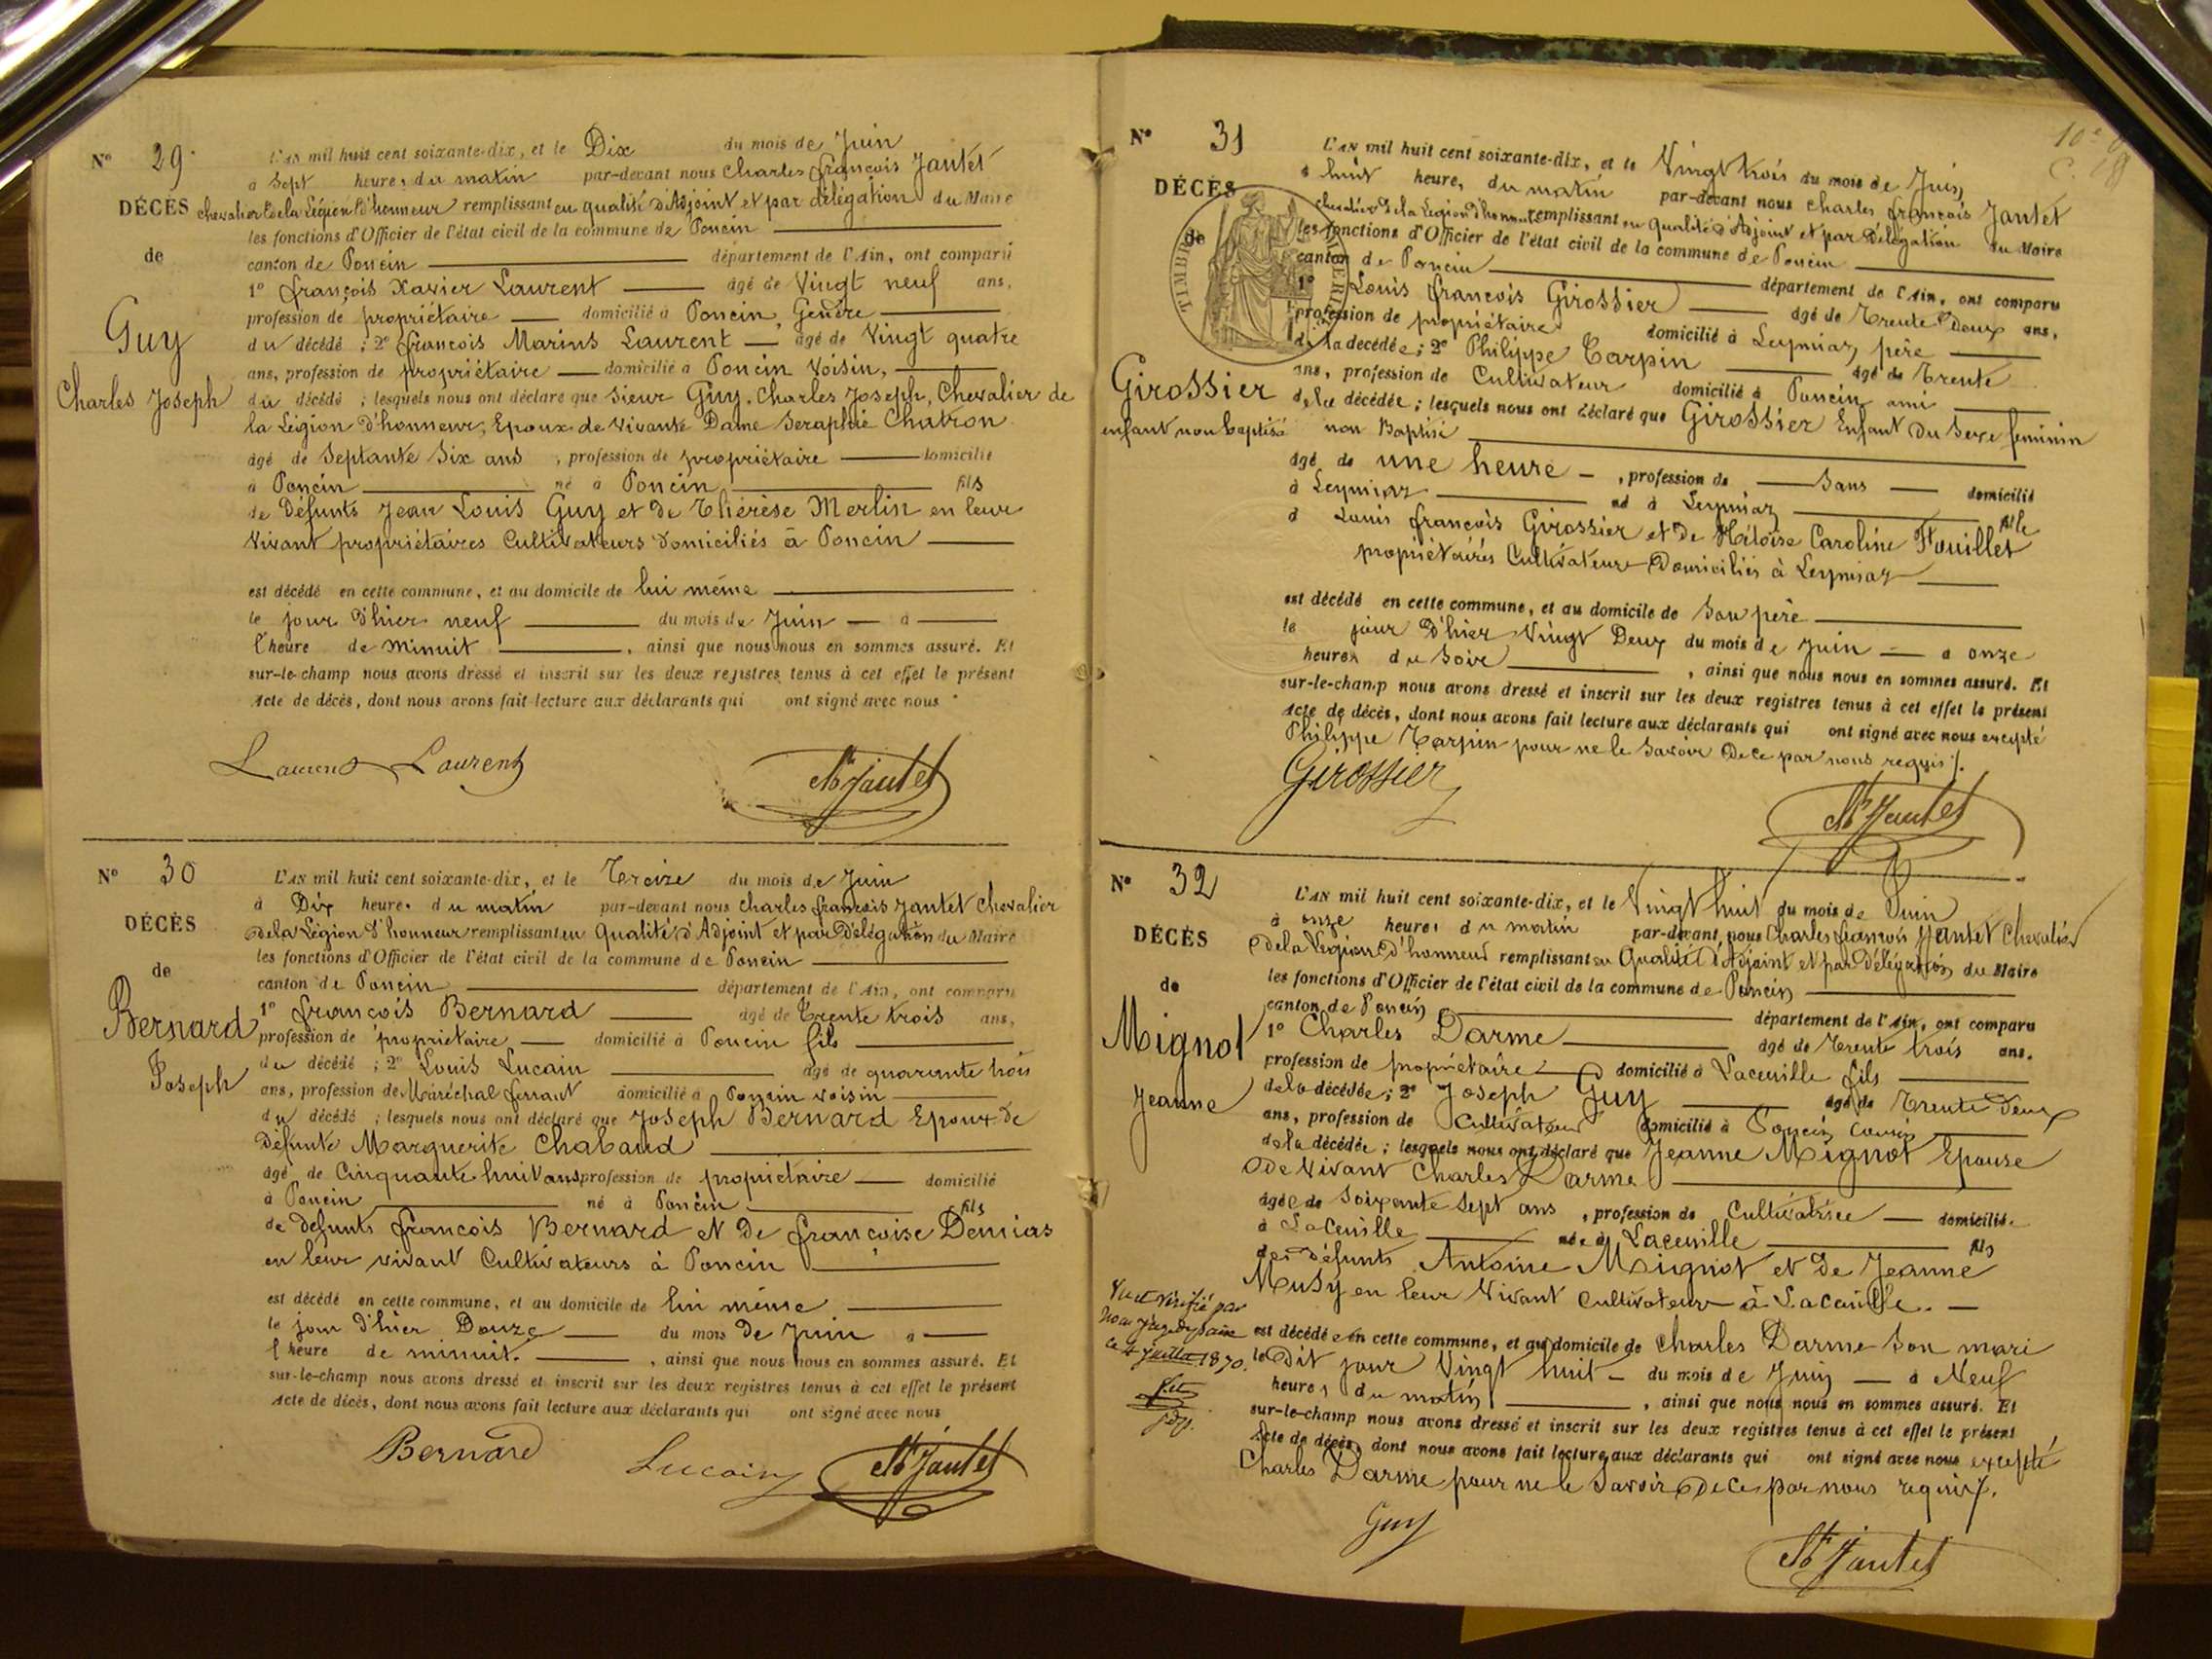 N° 29
L'AN mil huit cent soixante-dix, et le Dix du mois de Juin
à Sept heures du matin par-devant nous Charles françois Jantet
DÉCÈS chevalier de la Légion d'honneur remplissant en qualité d'Adjoint et par délégation du Maire
les fonctions d'Officier de l'état civil de la commune de Poncin
de
canton de Poncin département de l'Ain, ont comparu
1° françois Xavier Laurent âgé de Vingt neuf ans,
profession de propriétaire domicilié à Poncin, Gendre
Guy
du décédé ; 2° françois Marius Laurent âgé de Vingt quatre
ans, profession de propriétaire domicilié à Poncin Voisin,
Charles Joseph
du décédé ; lesquels nous ont déclaré que Sieur Guy, Charles Joseph, Chevalier de
la Légion d'honneur, Epoux de Vivante Dame Seraphie Chatron
âgé de Septante Six ans , profession de propriétaire domicilié
à Poncin né à Poncin fils
de Défunts Jean Louis Guy et de Thérèse Merlin en leur
Vivant propriétaires Cultivateurs domiciliés à Poncin
est décédé en cette commune, et au domicile de lui même
le jour d'hier neuf du mois de Juin à
l'heure de Minuit , ainsi que nous nous en sommes assuré. Et
sur-le-champ nous avons dressé et inscrit sur les deux registres tenus à cet effet le présent
Acte de décès, dont nous avons fait lecture aux déclarants qui ont signé avec nous
Laurent Laurent Jantet
N° 30
L'AN mil huit cent soixante-dix, et le Treize du mois de Juin
à Dix heures du matin par-devant nous Charles françois Jantet Chevalier
DÉCÈS
de la Légion d'honneur remplissant en Qualité d'Adjoint et par Délégation du Maire
les fonctions d'Officier de l'état civil de la commune de Poncin
de
canton de Poncin département de l'Ain, ont comparu
1° françois Bernard âgé de Trente trois ans,
Bernard
profession de propriétaire domicilié à Poncin fils
du décédé ; 2° Louis Lucain âgé de quarante trois
Joseph
ans, profession de Maréchal ferrant domicilié à Poncin voisin
du décédé ; lesquels nous ont déclaré que Joseph Bernard Epoux de
Défunte Marguerite Chabaud
âgé de Cinquante huit ans profession de propriétaire domicilié
à Poncin né à Poncin fils
de défunts françois Bernard et de françoise Demias
en leur vivant Cultivateurs à Poncin
est décédé en cette commune, et au domicile de lui même
le jour d'hier Douze du mois de Juin à
l'heure de minuit. , ainsi que nous nous en sommes assuré. Et
sur-le-champ nous avons dressé et inscrit sur les deux registres tenus à cet effet le présent
Acte de décès, dont nous avons fait lecture aux déclarants qui ont signé avec nous
Bernard Lucain Jantet
N° 31
L'AN mil huit cent soixante-dix, et le Vingt trois du mois de Juin
à huit heures du matin par-devant nous Charles françois Jantet
DÉCÈS
chevalier de la Légion d'honneur remplissant en qualité d'Adjoint et par Délégation du Maire
de
les fonctions d'Officier de l'état civil de la commune de Poncin
canton de Poncin département de l'Ain, ont comparu
TIMBRE
1° Louis françois Girossier âgé de Trente Deux ans,
profession de propriétaire domicilié à Leymiaz père
de la décédée ; 2° Philippe Tarpin âgé de Trente
ans, profession de Cultivateur domicilié à Poncin ami
Girossier
de la décédée ; lesquels nous ont déclaré que Girossier Enfant du Sexe feminin
enfant non baptisé
non Baptisé
âgé de une heure , profession de Sans domicilié
à Leymiaz né à Leymiaz fille
d Louis françois Girossier et de Héloïse Caroline Fouillet
propriétaires Cultivateurs Domiciliés à Leymiaz
est décédé en cette commune, et au domicile de Son père
le jour d'hier Vingt Deux du mois de Juin à onze
heures du Soir , ainsi que nous nous en sommes assuré. Et
sur-le-champ nous avons dressé et inscrit sur les deux registres tenus à cet effet le présent
Acte de décès, dont nous avons fait lecture aux déclarants qui ont signé avec nous excepté
Philippe Tarpin pour ne le Savoir De ce par nous requis /.
Girossier Jantet
N° 32
L'AN mil huit cent soixante-dix, et le Vingt huit du mois de Juin
à onze heures du matin par-devant nous Charles françois Jantet Chevalier
DÉCÈS
de la Légion d'honneur remplissant en Qualité d'Adjoint et par Délégation du Maire
les fonctions d'Officier de l'état civil de la commune de Poncin
de
canton de Poncin département de l'Ain, ont comparu
1° Charles Darme âgé de Trente trois ans.
Mignot
profession de propriétaire domicilié à Laceuille fils
de la décédée ; 2° Joseph Guy âgé de Trente Deux
Jeanne
ans, profession de Cultivateur domicilié à Poncin cousin
de la décédée ; lesquels nous ont déclaré que Jeanne Mignot Epouse
De Vivant Charles Darme
âgée de Soixante Sept ans , profession de Cultivatrice domicilié
à Laceuille née à Laceuille fils
de défunts Antoine Mignot et de Jeanne
Musy en leur Vivant Cultivateurs à Laceuille.
Vu et vérifié par
nous juge de paix
ce 4 juillet 1870.
est décédée en cette commune, et au domicile de Charles Darme Son mari
le Dit jour Vingt huit du mois de Juin à Neuf
heures du matin , ainsi que nous nous en sommes assuré. Et
sur-le-champ nous avons dressé et inscrit sur les deux registres tenus à cet effet le présent
Acte de décès, dont nous avons fait lecture aux déclarants qui ont signé avec nous excepté
Charles Darme pour ne le Savoir De ce par nous requis /.
Guy Jantet